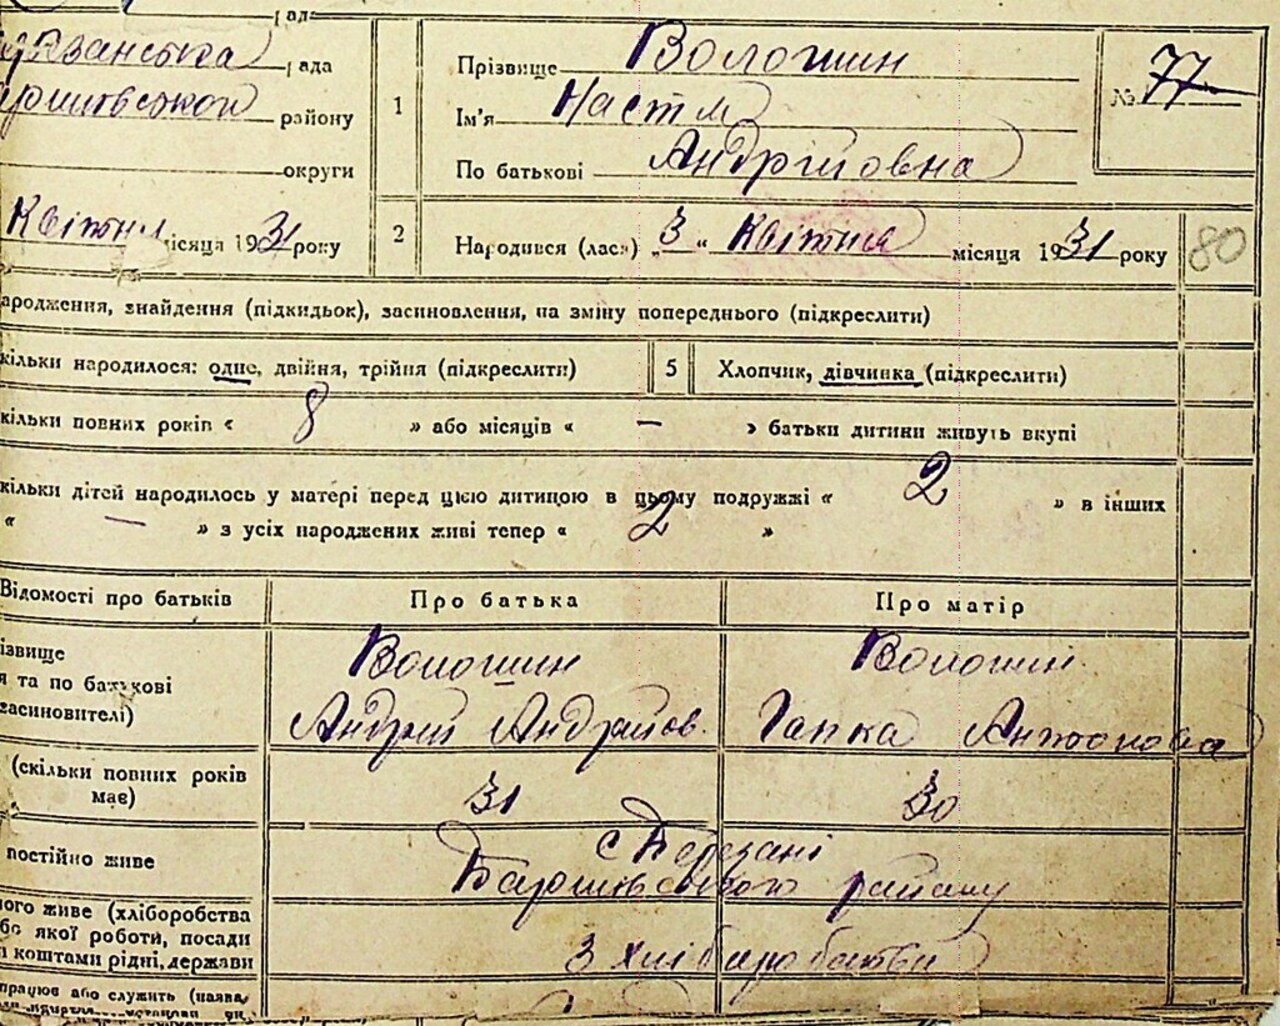 рад
рязанська рада
аришівської району
округи
Квітня місяця 1931 року
1
Прізвище Волошин
Ім'я Настя
По батькові Андріївна
№ 77
2
Народився (лася) „3“ Квітня місяця 1931 року
80
ародження, знайдення (підкидьок), засиновлення, на зміну попереднього (підкреслити)
кільки народилося: одне, двійня, трійня (підкреслити)
5 Хлопчик, дівчинка (підкреслити)
кільки повних років « 8 » або місяців « — » батьки дитини живуть вкупі
кільки дітей народилось у матері перед цією дитиною в цьому подружжі « 2 » в інших
« — » з усіх народжених живі тепер « 2 »
Відомості про батьків
Про батька
Про матір
ізвище
я та по батькові
засиновителі)
Волошин
Андрій Андрійов.
Волошин
Гапка Антонова
(скільки повних років
має)
31
30
постійно живе
с Березані
Баришівського району
ного живе (хліборобства
бо якої роботи, посади
і коштами рідні, держави
З хліборобства
працює або служить (назва,